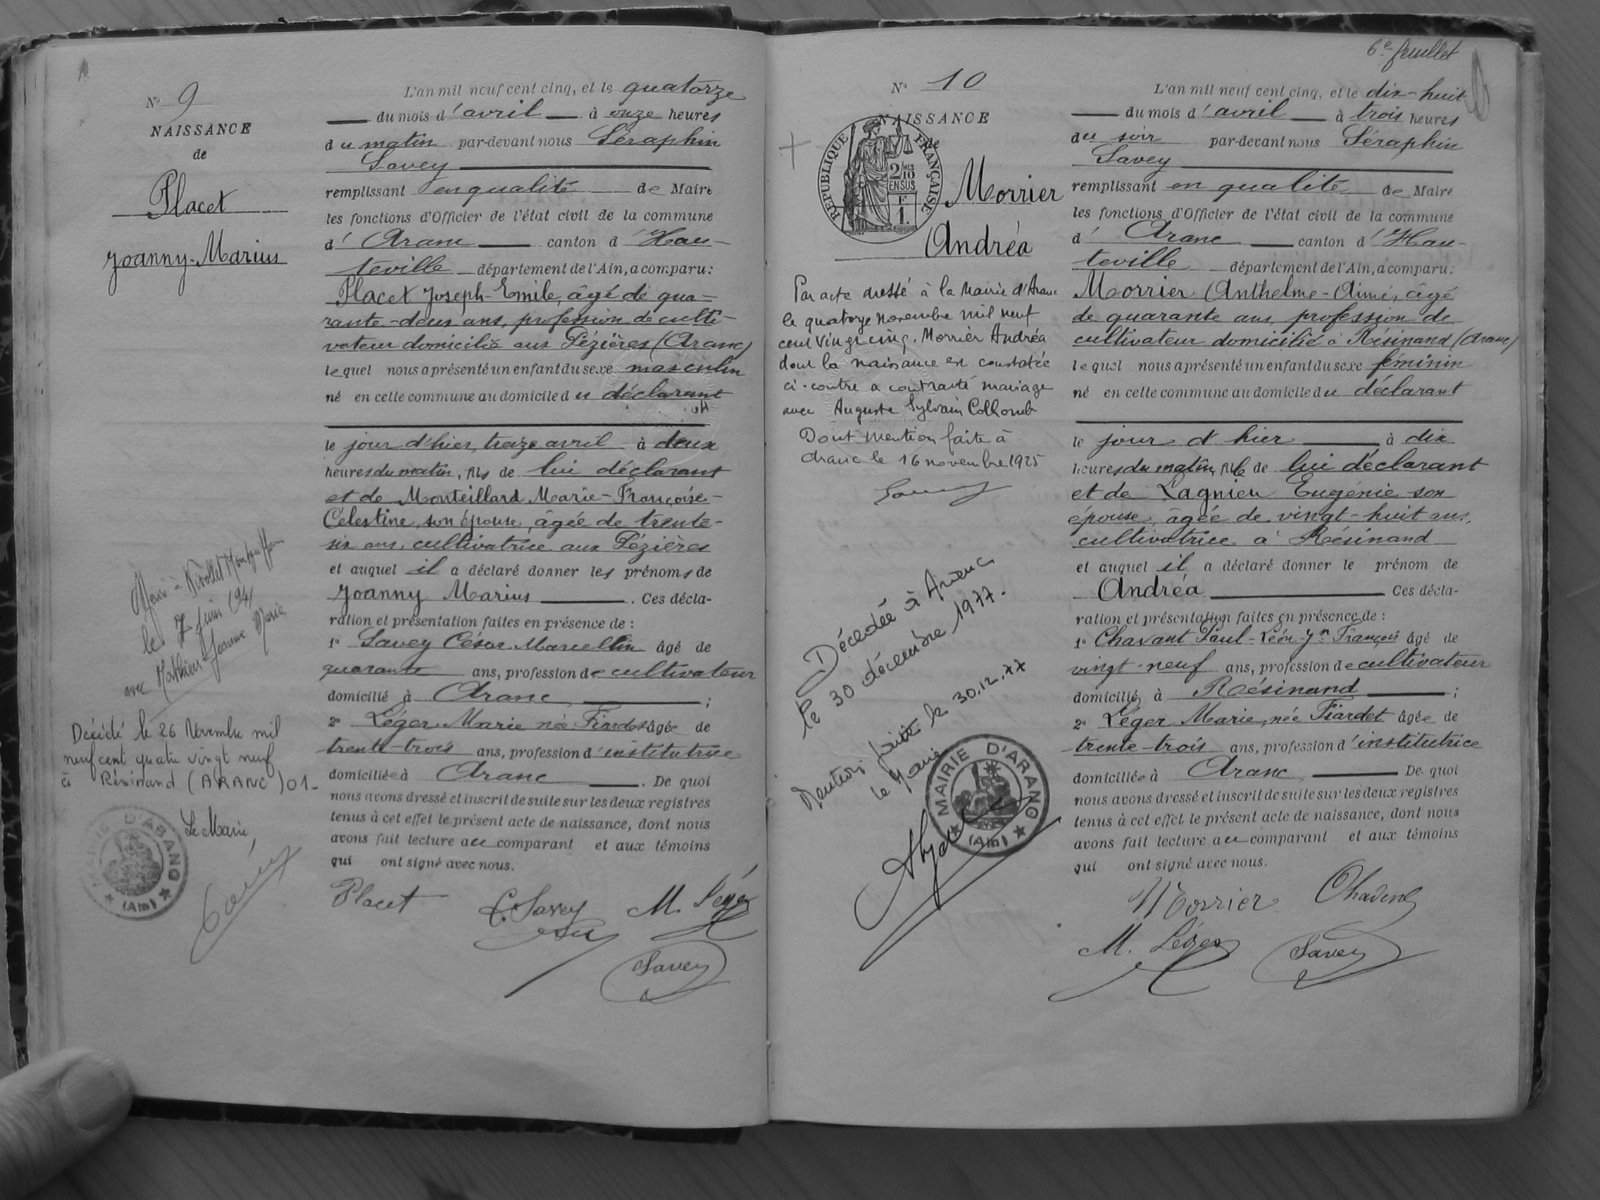 Nº 9
NAISSANCE
de
Placet
Joanny-Marius
L'an mil neuf cent cinq, et le quatorze
du mois d'avril à onze heures
du matin par-devant nous Séraphin
Savey
remplissant en qualité de Maire
les fonctions d'Officier de l'état civil de la commune
d'Aranc canton d'Hau-
teville département de l'Ain, a comparu:
Placet Joseph-Emile, âgé de qua-
rante-deux ans, profession de culti-
vateur domicilié aux Pézières (Aranc)
lequel nous a présenté un enfant du sexe masculin
né en cette commune au domicile du déclarant
le jour d'hier, treize avril à deux
heures du matin, fils de lui déclarant
et de Monteillard Marie-Françoise-
Célestine, son épouse, âgée de trente-
six ans, cultivatrice aux Pézières
et auquel il a déclaré donner les prénoms de
Joanny Marius. Ces décla-
ration et présentation faites en présence de :
1º Savey César Marcellin âgé de
quarante ans, profession de cultivateur
domicilié à Aranc ;
2º Léger Marie née Fiardet âgée de
trente-trois ans, profession d'institutrice
domiciliée à Aranc. De quoi
nous avons dressé et inscrit de suite sur les deux registres
tenus à cet effet le présent acte de naissance, dont nous
avons fait lecture au comparant et aux témoins
qui ont signé avec nous.
Placet C. Savey M. Léger
Savey
le 7 juin 1941
avec Mathieu Jeanne Marie
Décédé le 26 Novembre mil
neuf cent quatre vingt neuf
à Résinand (ARANC) 01-
Le Maire,
MAIRIE D'ARANC
(Ain)
6e feuillet
Nº 10
NAISSANCE
de
RÉPUBLIQUE FRANÇAISE
Morrier
Andréa
Par acte dressé à la Mairie d'Aranc
le quatorze novembre mil neuf
cent vingt cinq, Morrier Andréa
dont la naissance est constatée
ci-contre a contracté mariage
avec Auguste Sylvain Collomb
Dont mention faite à
Aranc le 16 novembre 1925
Savey
Décédée à Aranc
le 30 décembre 1977.
Mention faite le 30.12.77
le Maire
MAIRIE D'ARANC
(Ain)
L'an mil neuf cent cinq, et le dix-huit
du mois d'avril à trois heures
du soir par-devant nous Séraphin
Savey
remplissant en qualité de Maire
les fonctions d'Officier de l'état civil de la commune
d'Aranc canton d'Hau-
teville département de l'Ain, a comparu:
Morrier Anthelme-Aimé, âgé
de quarante ans, profession de
cultivateur domicilié à Résinand (Aranc)
lequel nous a présenté un enfant du sexe féminin
né en cette commune au domicile du déclarant
le jour d'hier à dix
heures du matin, fille de lui déclarant
et de Lagnieu Eugénie son
épouse, âgée de vingt-huit ans,
cultivatrice à Résinand
et auquel il a déclaré donner le prénom de
Andréa Ces décla-
ration et présentation faites en présence de :
1º Chavant Paul-Léon-Jn François âgé de
vingt-neuf ans, profession de cultivateur
domicilié à Résinand ;
2º Léger Marie, née Fiardet âgée de
trente-trois ans, profession d'institutrice
domiciliée à Aranc. De quoi
nous avons dressé et inscrit de suite sur les deux registres
tenus à cet effet le présent acte de naissance, dont nous
avons fait lecture au comparant et aux témoins
qui ont signé avec nous.
Morrier Chavant
M. Léger Savey